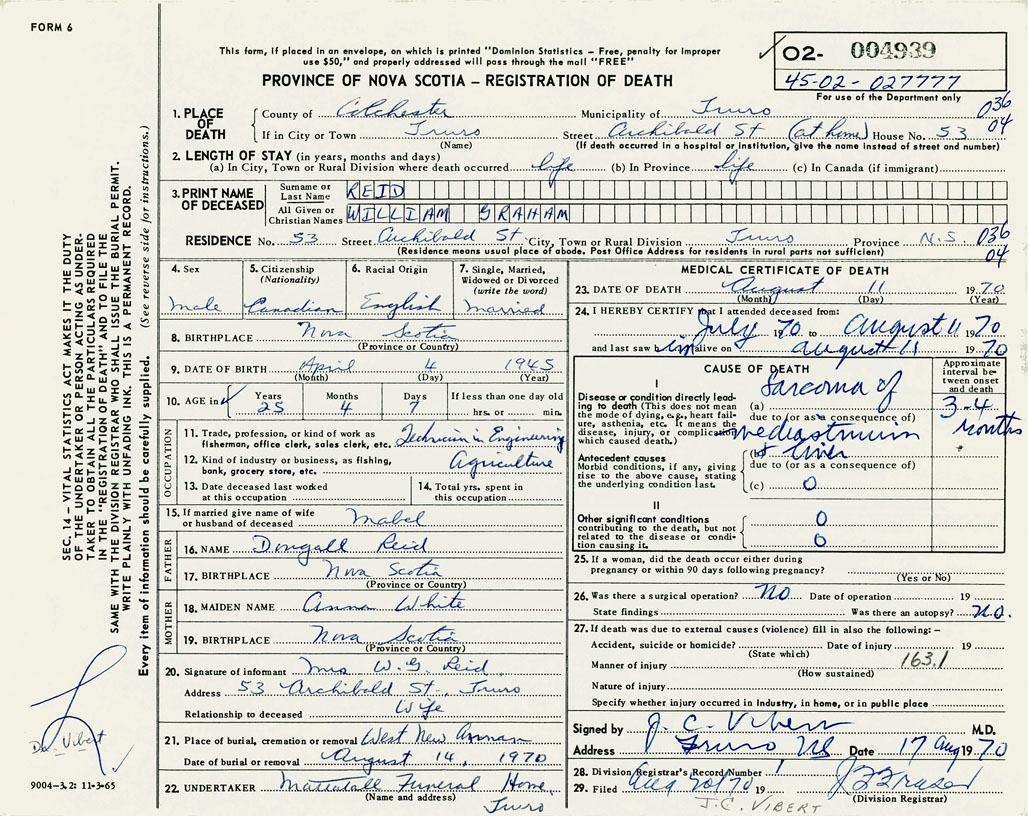 FORM 6
This form, if placed in an envelope, on which is printed "Dominion Statistics – Free, penalty for improper
use $50," and properly addressed will pass through the mail "FREE"
PROVINCE OF NOVA SCOTIA – REGISTRATION OF DEATH
02- 004939
45-02-027777
For use of the Department only
036
04
1. PLACE OF DEATH
County of Colchester Municipality of Truro
If in City or Town Truro Street Archibald St (at home) House No. 53
(Name) (If death occurred in a hospital or institution, give the name instead of street and number)
2. LENGTH OF STAY (in years, months and days)
(a) In City, Town or Rural Division where death occurred life (b) In Province life (c) In Canada (if immigrant)
3. PRINT NAME OF DECEASED
Surname or Last Name REID
All Given or Christian Names WILLIAM GRAHAM
RESIDENCE No. 53 Street Archibald St City, Town or Rural Division Truro Province N.S. 036
04
(Residence means usual place of abode. Post Office Address for residents in rural parts not sufficient)
4. Sex
male
5. Citizenship
(Nationality)
Canadian
6. Racial Origin
English
7. Single, Married,
Widowed or Divorced
(write the word)
married
8. BIRTHPLACE Nova Scotia
(Province or Country)
9. DATE OF BIRTH April 4 1945
(Month) (Day) (Year)
10. AGE in
Years Months Days If less than one day old
25 4 7 hrs. or min.
OCCUPATION
11. Trade, profession, or kind of work as
fisherman, office clerk, sales clerk, etc. Technician in Engineering
12. Kind of industry or business, as fishing,
bank, grocery store, etc. Agriculture
13. Date deceased last worked
at this occupation
14. Total yrs. spent in
this occupation
15. If married give name of wife
or husband of deceased Mabel
FATHER
16. NAME Dougall Reid
17. BIRTHPLACE Nova Scotia
(Province or Country)
MOTHER
18. MAIDEN NAME Anna White
19. BIRTHPLACE Nova Scotia
(Province or Country)
20. Signature of informant Mrs W.G. Reid
Address 53 Archibald St., Truro
Relationship to deceased Wife
21. Place of burial, cremation or removal West New Annan
Date of burial or removal August 14, 1970
22. UNDERTAKER Mattatall Funeral Home,
(Name and address) Truro
MEDICAL CERTIFICATE OF DEATH
23. DATE OF DEATH August 11 1970
(Month) (Day) (Year)
24. I HEREBY CERTIFY that I attended deceased from:
July 1970 to August 11 1970
and last saw him alive on August 11 1970
CAUSE OF DEATH
Approximate interval between onset and death
I
Disease or condition directly lead-
ing to death (This does not mean
the mode of dying, e.g., heart fail-
ure, asthenia, etc. It means the
disease, injury, or complication
which caused death.)
(a) Sarcoma of
due to (or as a consequence of)
mediastinum
3-4 months
Antecedent causes
Morbid conditions, if any, giving
rise to the above cause, stating
the underlying condition last.
(b) + liver
due to (or as a consequence of)
(c) 0
II
Other significant conditions
contributing to the death, but not
related to the disease or condi-
tion causing it.
0
0
25. If a woman, did the death occur either during
pregnancy or within 90 days following pregnancy?
(Yes or No)
26. Was there a surgical operation? No Date of operation 19
State findings Was there an autopsy? No.
27. If death was due to external causes (violence) fill in also the following: –
Accident, suicide or homicide? Date of injury 19
(State which) 163.1
Manner of injury
(How sustained)
Nature of injury
Specify whether injury occurred in Industry, in home, or in public place
Signed by J. C. Vibert M.D.
Address Truro NS Date 17 Aug 1970
28. Division Registrar's Record Number
29. Filed Aug 20/70 19
(Division Registrar)
J.C. VIBERT
SEC. 14 – VITAL STATISTICS ACT MAKES IT THE DUTY
OF THE UNDERTAKER OR PERSON ACTING AS UNDER-
TAKER TO OBTAIN ALL THE PARTICULARS REQUIRED
IN THE "REGISTRATION OF DEATH" AND TO FILE THE
SAME WITH THE DIVISION REGISTRAR WHO SHALL ISSUE THE BURIAL PERMIT.
WRITE PLAINLY WITH UNFADING INK. THIS IS A PERMANENT RECORD.
Every item of information should be carefully supplied. (See reverse side for instructions.)
Dr. Vibert
9004-3.2: 11-3-65